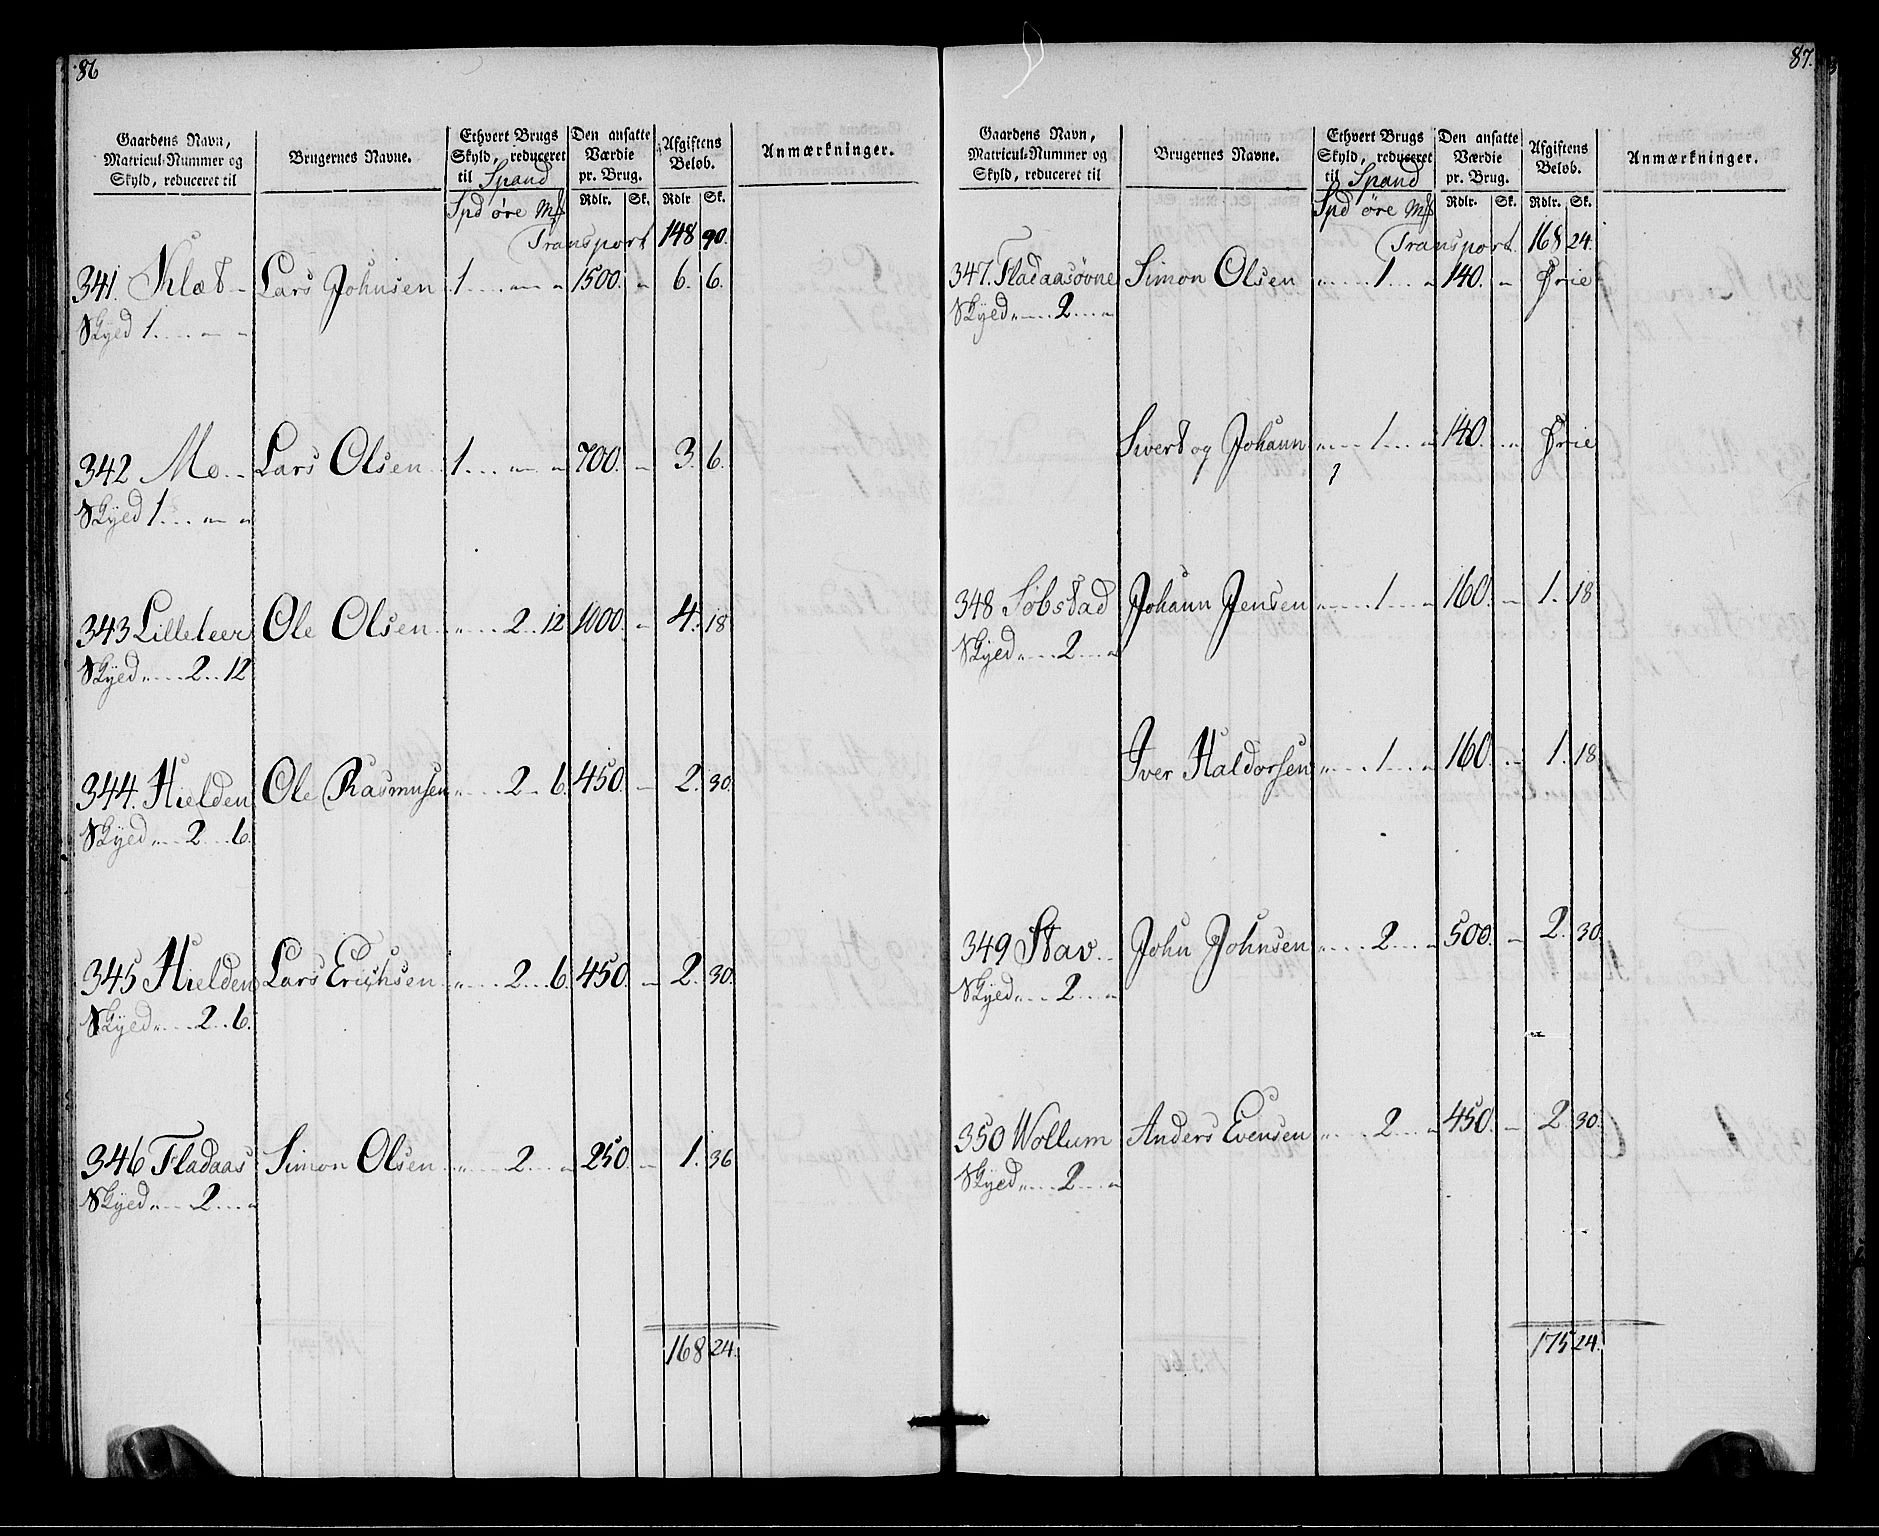 86
Gaardens Navn, Matricul-Nummer og Skyld, reduceret til
Brugernes Navne.
Ethvert Brugs Skyld, reduceret til Spand
Den ansatte Værdie pr. Brug.
Afgiftens Beløb.
Anmærkninger.
Spd øre Mk Rdlr. Sk. Rdlr Sk.
Transport 148 90.
341. Klæt Lars Johnsen 1 .... „ „ 1500. „ 6. 6.
Skyed 1 .... „ „
342 Mo Lars Olsen 1 ... „ „ 700. „ 3. 6.
Skyed 1 ... „ „
343 Lilleleer Ole Olsen „ .... 2 .. 12 1000. „ 4. 18
Skyed „ .... 2 .. 12
344. Hielden Ole Rasmusen „ .... 2 .. 6. 450. „ 2. 30.
Skyed „ ... 2 ... 6.
345 Hielden Lars Erichsen „ .... 2 ... 6. 450. „ 2. 30.
Skyed „ .... 2 .. 6.
346 Fladaas Simon Olsen „ .... 2 ... „ 250. „ 1. 36
Skyed „ .... 2 .... „
168 24.
87.
Gaardens Navn, Matricul-Nummer og Skyld, reduceret til
Brugernes Navne.
Ethvert Brugs Skyld, reduceret til Spand
Den ansatte Værdie pr. Brug.
Afgiftens Beløb.
Anmærkninger.
Spd øre Mk Rdlr. Sk. Rdlr. Sk.
Transport 168 24.
347. Fladaasøvne Simon Olsen „ .... 1 ... „ 140. „ Frie
Skyed „ .... 2 ... „
Sivert og Johann „ .... 1 ... „ 140. „ Frie
348 Søbstad Johann Jensen „ .... 1 ... „ 160. „ 1. 18
Skyed „ .... 2 ... „
Iver Haldorsen „ .... 1 ... „ 160. „ 1. 18.
349 Stav John Johnsen „ .... 2 ... „ 500. „ 2. 30.
Skyed „ ... 2 ... „
350 Wollum Anders Evensen „ .... 2 ... „ 450. „ 2. 30.
Skyed „ .... 2 ... „
175 24.